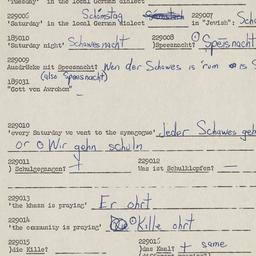 'Tuesday' in the local German dialect
229006 Schómstag 229007
'Saturday' in the local German dialect in "Jewish":
185010 229008
'Saturday night' Schawesnacht )Speesnacht? Speisnacht
229009
Ausdrücke mit Speesnacht? Wen der Schawes is 'rum is
185031 (also Speusnacht)
"Gott von Avrohom"
229010
'every Saturday we went to the synagogue' Jeder Schawes
or Wir gehn schuln
229011 229012
) Schulgegangen? + Was ist Schulklopfen? —
229013
'the khazn is praying' Er ohrt
229014
'the community is praying' Kille ohrt
229015 229015
)die Kille? )das Kaal? + same